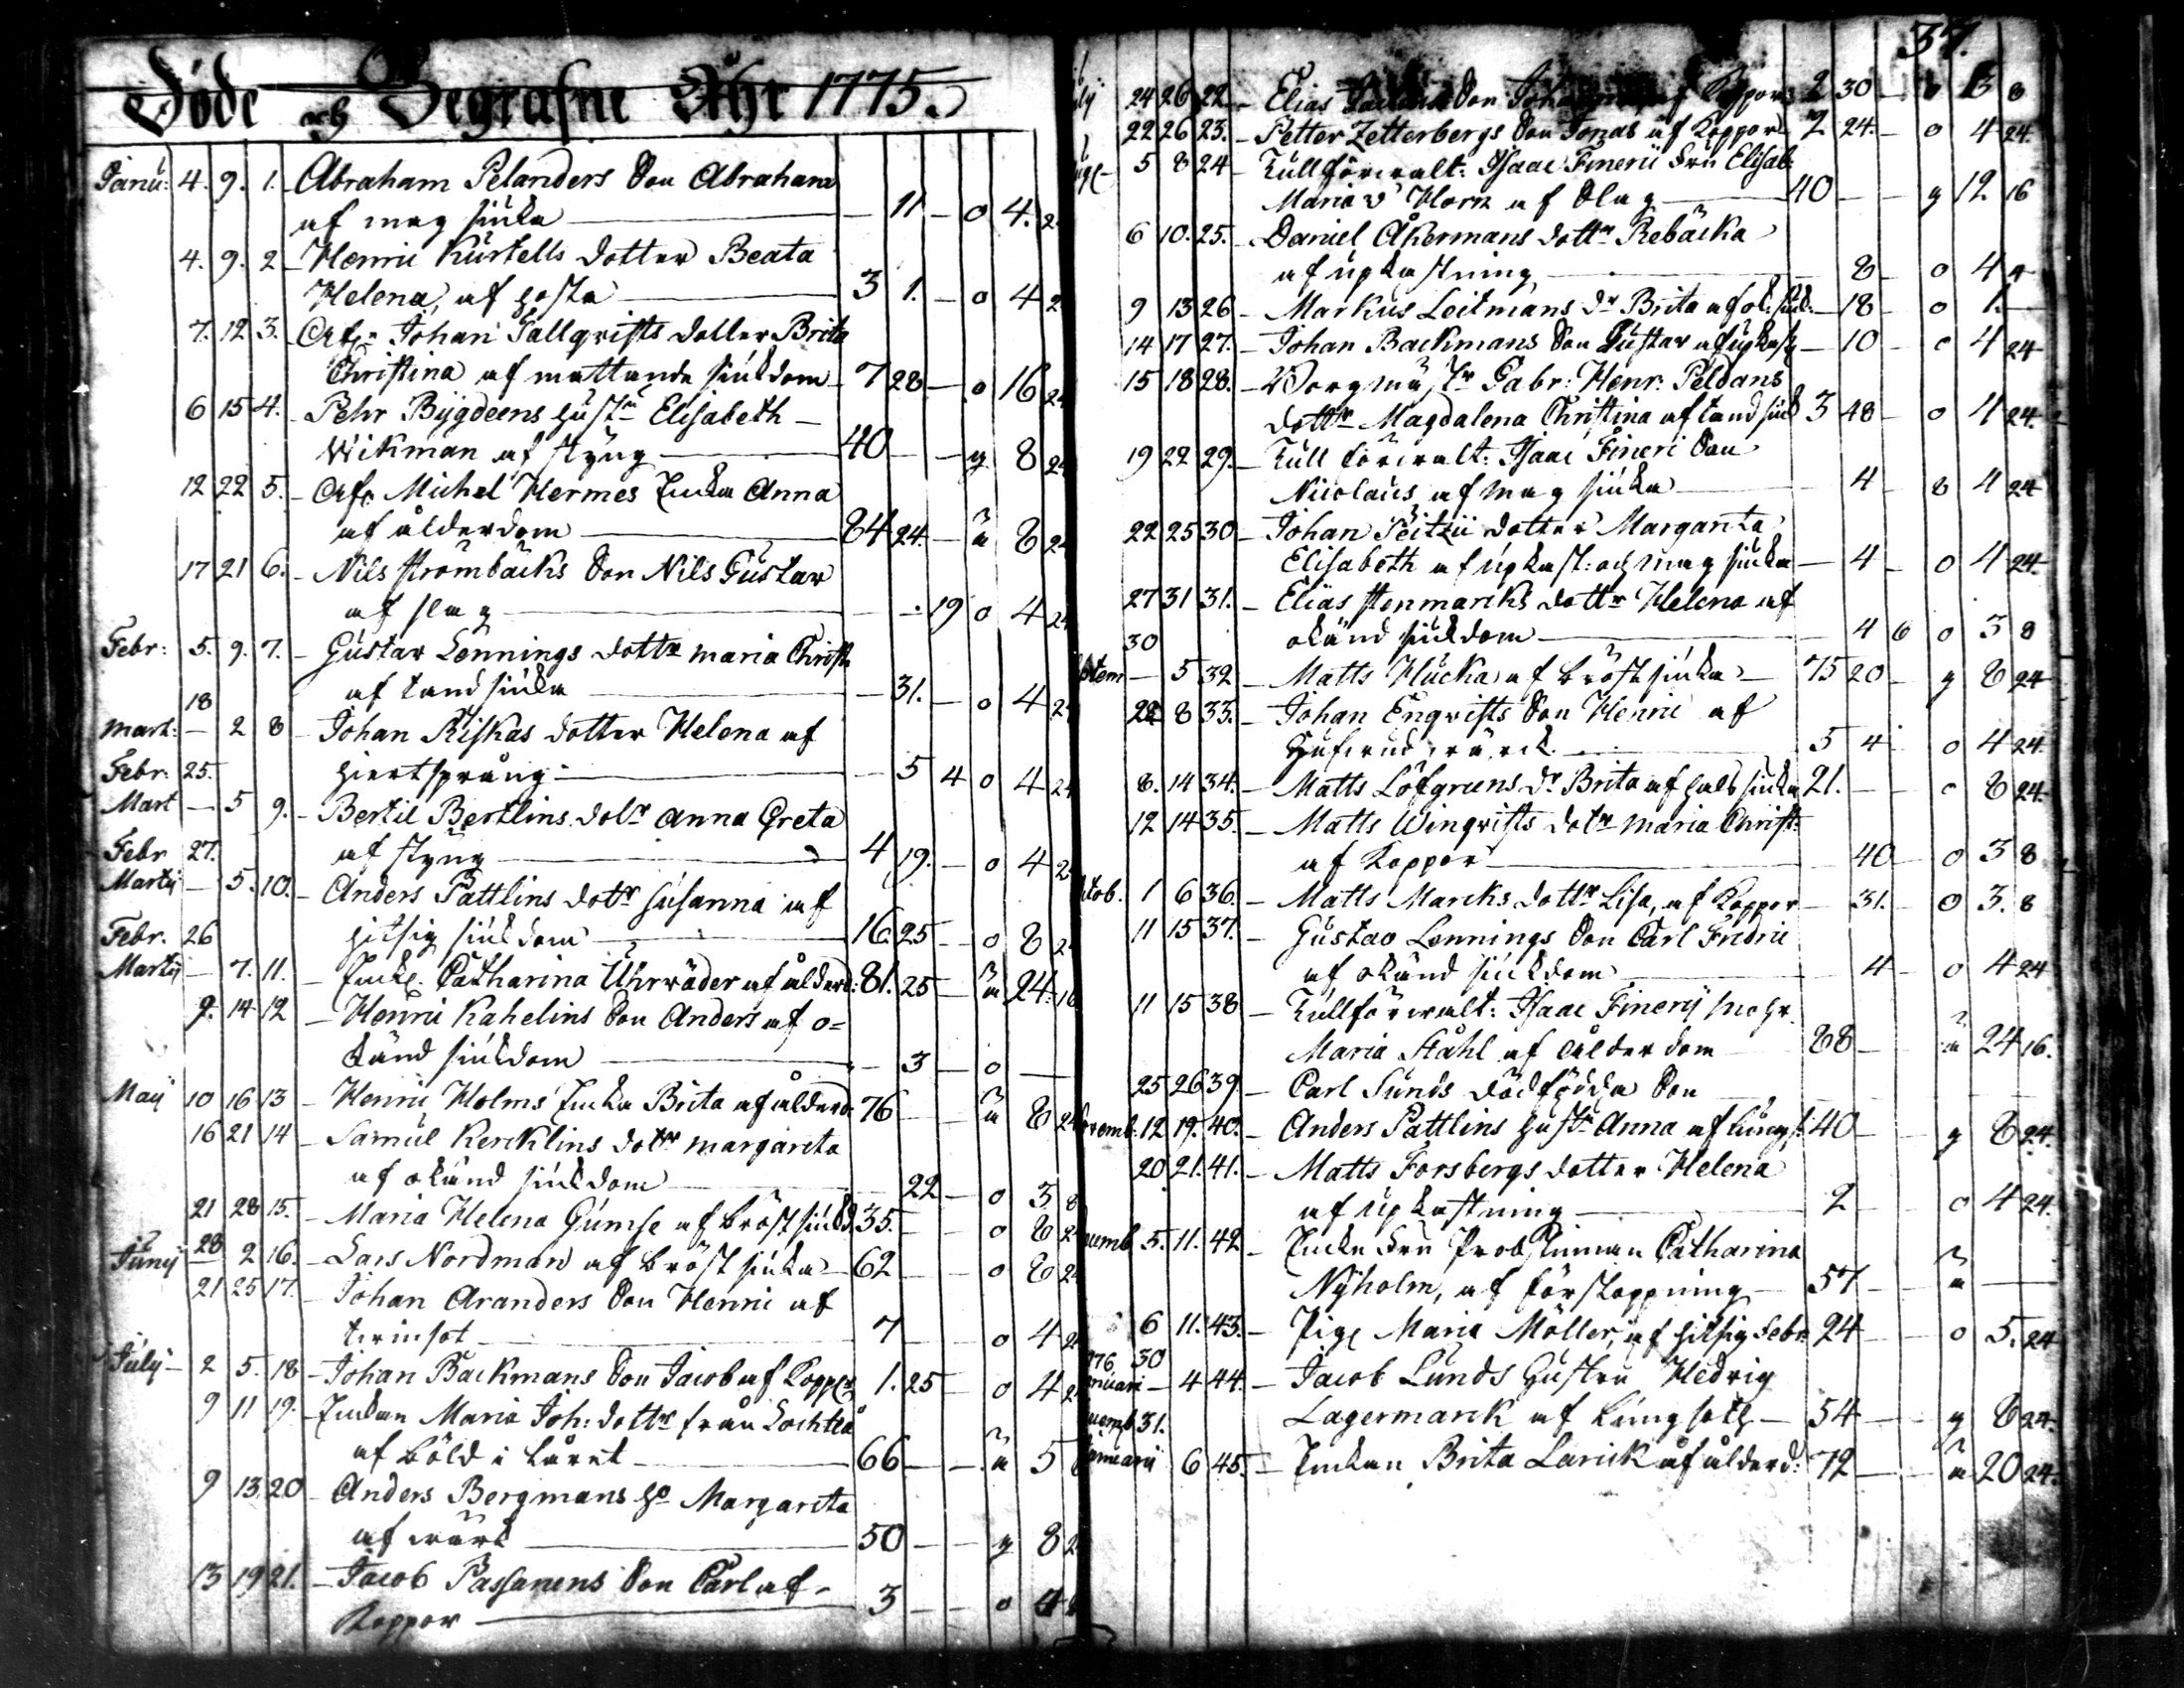 Döde och Begrafne Åhr 1775.
Janu: 4. 9. 1. Abraham Pelanders Son Abraham
af mag siuka — 11 — o 4. 2
4. 9. 2 Henric Kurtells dotter Beata
Helena, af hosta — 3 1. — o 4 2
7. 12 3. Johan Tallqvists dotter Brita
Christina af mattande siukdom 7 28 — o 16 24
6 15 4. Pehr Bygdeens hustr Elisabeth
Wikman af styng — 40 — g 8 24
12 22 5. Michel Hermes Enka Anna
af ålderdom — 84 24. — ä 8 24
17 21 6. Nils Strömbäcks Son Nils Gustaw
af slag — 19 o 4 24
Febr: 5. 9. 7. Gustav Lennings dottr Maria Christ
af tandsiuka — 31. — o 4 24
18
Mart: — 2 8 Johan Riskas dotter Helena af
Febr: 25. hiertsprång — 5 4 o 4 24
Mart — 5 9. Bertil Bertlins dotr Anna Greta
Febr 27. af styng — 4 19. — o 4 2
Martij — 5. 10. Anders Pattlins dotr Susanna af
Febr. 26 hitsig siukdom — 16 25 — o 8 2
Martij — 7. 11. Enk. Catharina Uhrwäder af ålderd: 81. 25 — ä 24. 16
9. 14 12 Henric Kahelins Son Anders af o=
känd siukdom — 3 — o —
Maij 10 16 13 Henric Holms Enka Brita af ålderd: 76 — ä 8 24
16 21 14 Samuel Kercklins dotr Margareta
af okänd siukdom — 22 — o 3 8
21 28 15. Maria Helena Gumse af bröstsiukd. 35. — o 8 2
28
Junij — 2 16. Lars Nordman af bröstsiuka — 62 — o 8 2
21 25 17. Johan Aranders Son Henric af
twinsot — 7 — o 4 2
Julij 2 5. 18 Johan Backmans Son Jacob af Koppor 1. 25 — o 4 2
9 11 19. Enkan Maria Joh: dottr från Lochteå
af böld i låret — 66 — ä 5
9 13 20 Anders Bergmans ho Margareta
af wärk — 50 — g 8 2
13 19 21. Jacob Passanens Son Carl af
Koppor — 3 — o 4 8
37.
24 26 22 Elias Son af Koppor 2 30 — o 3 8
22 26 23. Petter Zetterbergs Son Jonas af Koppor 2 24. — o 4 24.
5 8 24 Tullförwalt: Isaac Finerii Fru Elisab:
Maria v Horn af Slag — 40 — g 12 16
6 10. 25. Daniel Åkermans dottr Rebäcka
af upkastning — 8 — o 4 4
9 13 26 Markus Leitmans dr Brita af ok: siukd. — 18 — o 1. —
14 17 27. Johan Backmans Son Gustav af upkast — 10 — o 4 24
15 18 28. Borgmästr Gabr: Henr: Peldans
dottr Magdalena Christina af tandsiuk 3 48 — o 4 24.
19 22 29. Tullförwalt: Isaac Fineri Son
Nicolaus af mag siuka — 4 — o 4 24
22 25 30 Johan Peitzii dotter Margareta
Elisabeth af upkast: och mag siuka — 4 — o 4 24.
27 31 31. Elias Stenmarcks dottr Helena af
30 okänd siukdom — 4 6 o 3 8
ptem — 5 32 Matts Hucka af bröstsiuka — 75 20 — g 8 24
22 8 33. Johan Enqvists Son Henric af
hufwudwärck — 5 4 o 4 24
8. 14 34. Matts Löfgreens dr Brita af halssiuka 21. — o 8 24.
12 14 35. Matts Winqvists dotr Maria Christ:
af Koppor — 40 — o 3 8
ktob. 1 6 36. Matts Marcks dottr Lisa, af Koppor — 31. — o 3. 8
11 15 37. Gustav Lennings Son Carl Fridric
af okänd siukdom — 4 — o 4 24
11 15 38 Tullförwalt: Isaac Finerij Mohr
Maria Ståhl af ålderdom — 88 — ä 24 16.
25 26 39. Carl Sunds dödfödda Son
ovemb. 12 19. 40. Anders Pattlins hustr Anna af lungs: 40 — g 8 24.
20. 21. 41. Matts Forsbergs dotter Helena
af upkastning — 2 — o 4 24.
cemb 5. 11. 42 Enke Fru Probstinnan Catharina
Nyholm, af förstoppning — 57 — ä —
6 11. 43. Pig. Maria Möller, af hitsig Feber 24 — o 5. 24
776 30
anuari — 4 44. Jacob Lunds hustru Hedvig
cemb 31. Lagermarck af lungsot — 54 — g 8 24.
Januarii 6 45. Enkan Brita Larick af ålderd: 72 — ä 20 24.